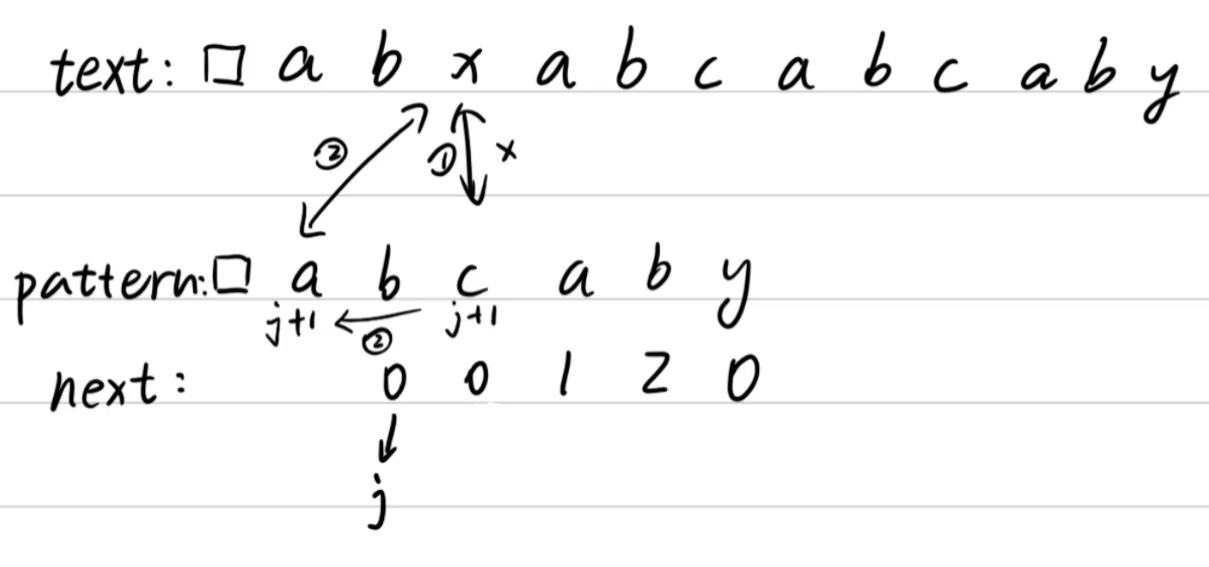 text: □ a b x a b c a b c a b y
② ① x
pattern: □ a b c a b y
j+1 ← j+1
②
next: 0 0 1 2 0
↓
j